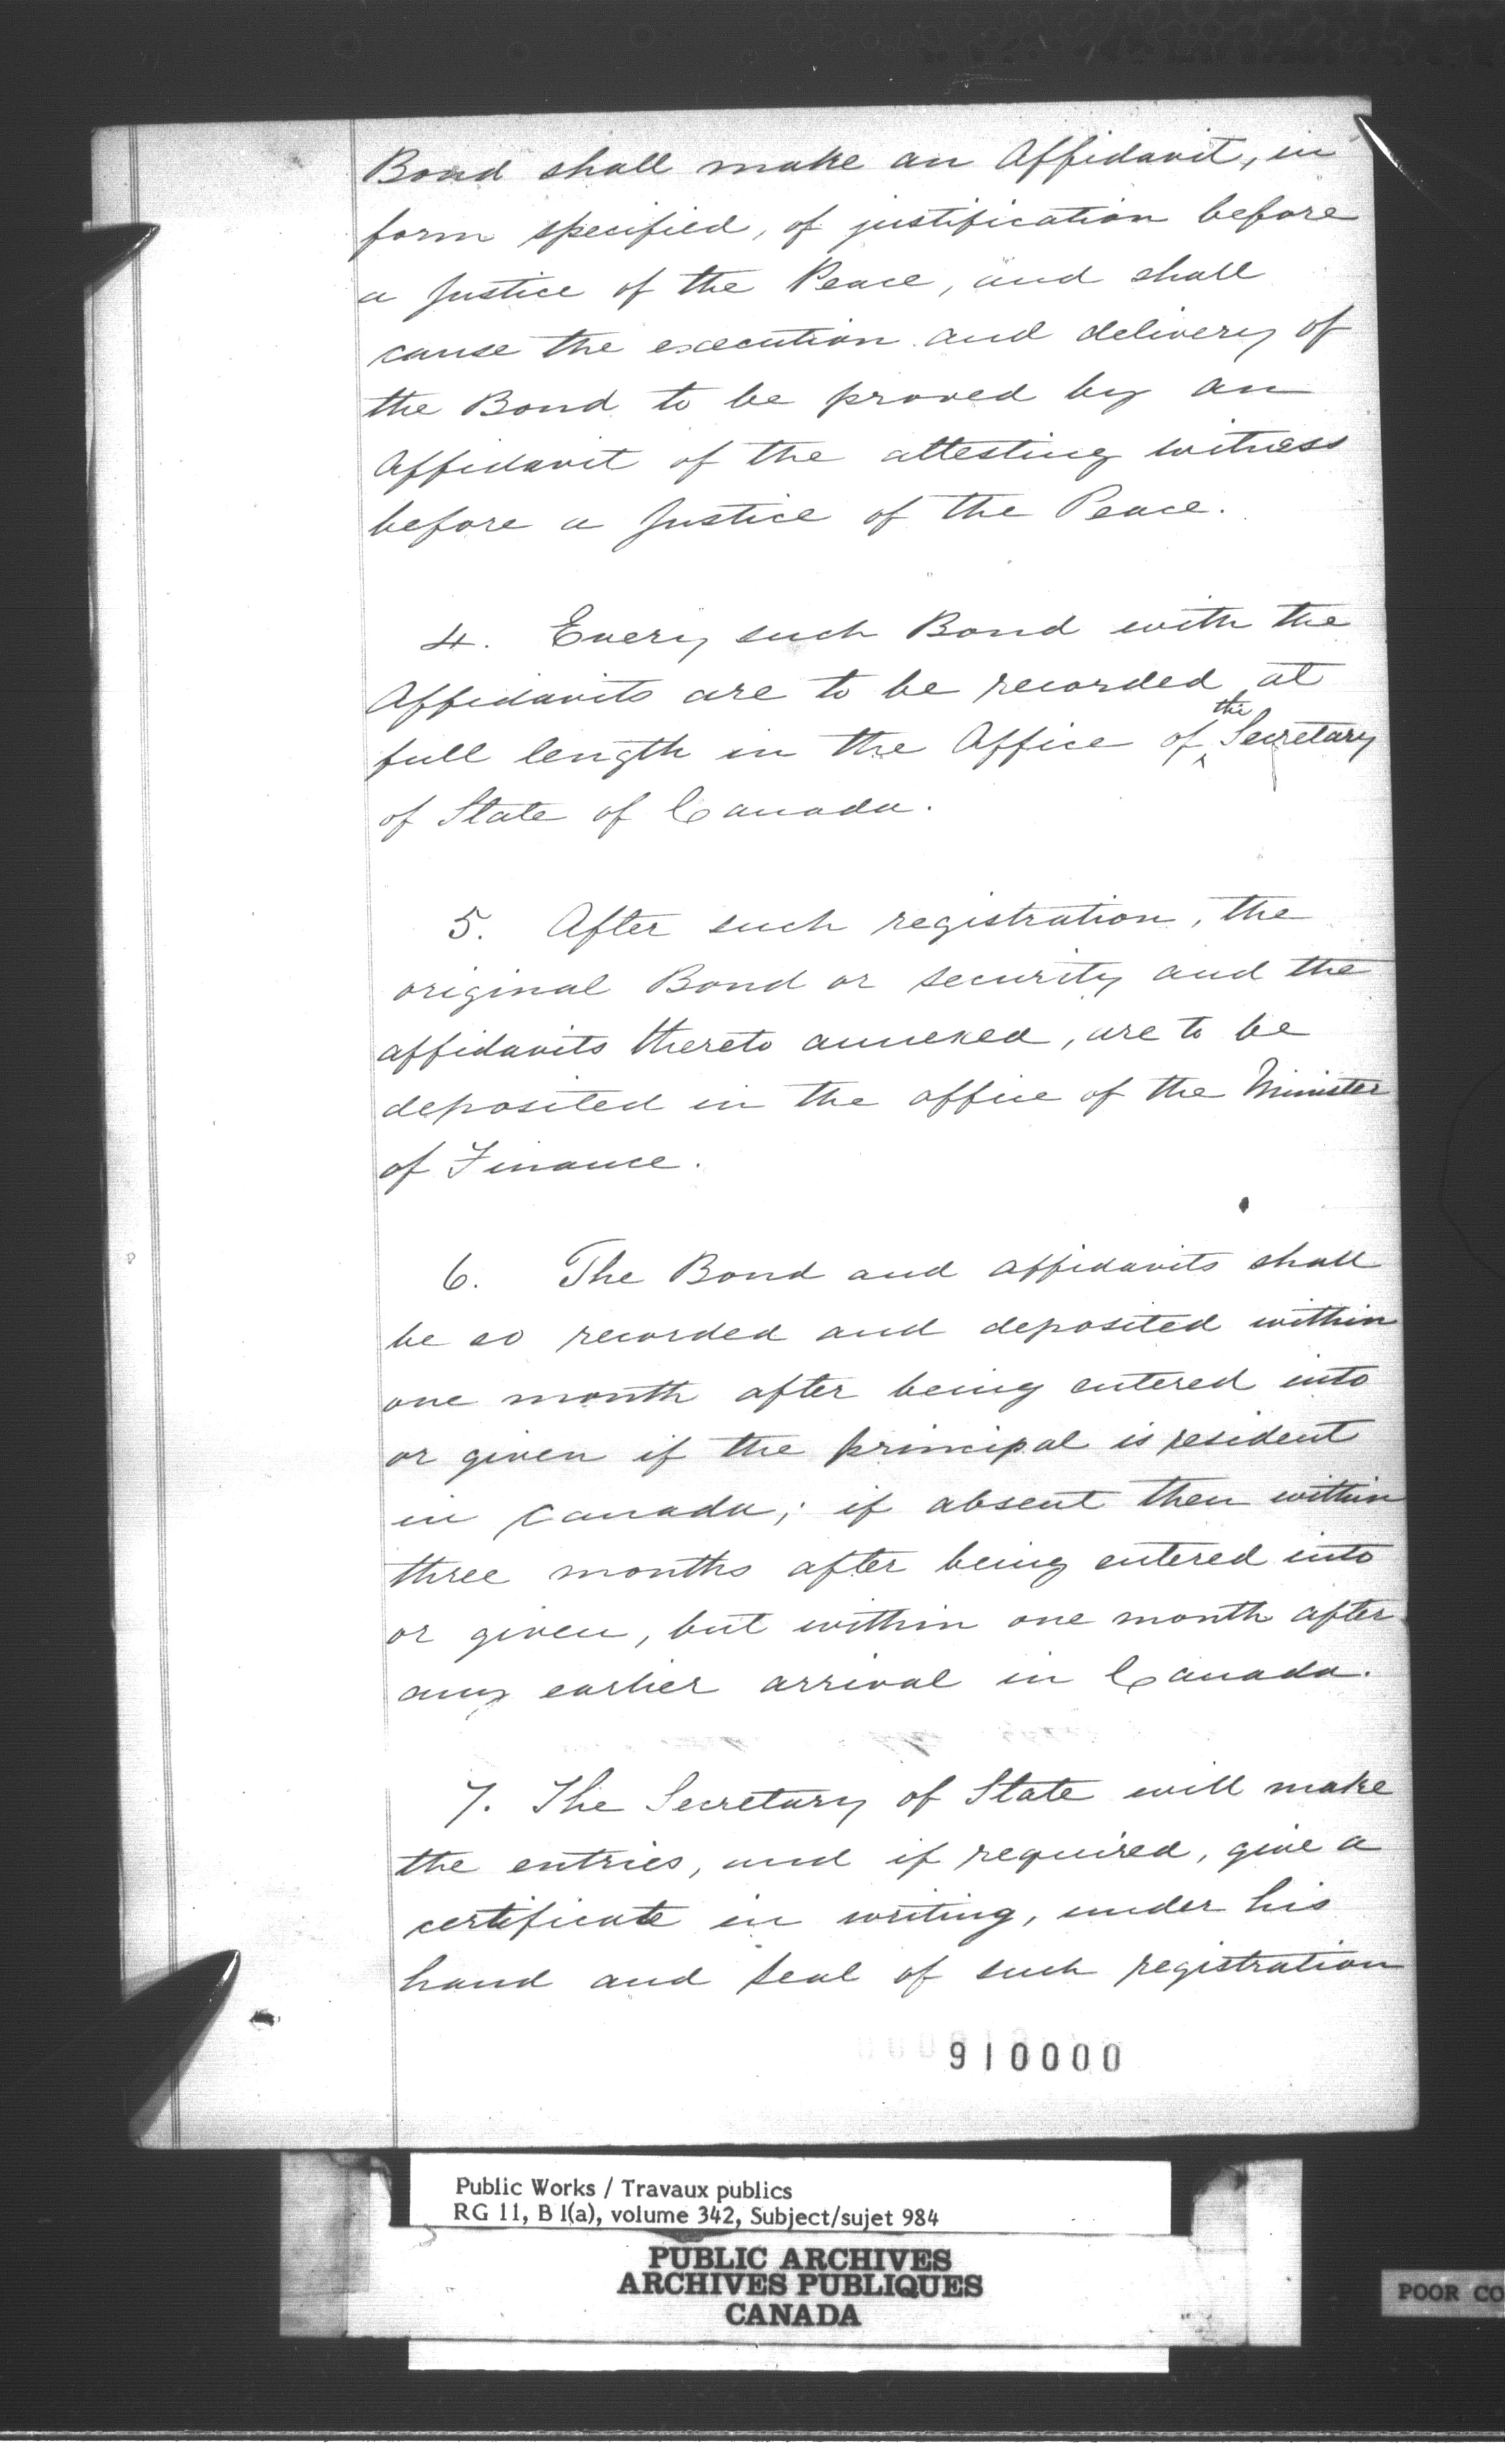 Bond shall make an Affidavit, in
form specified, of justification before
a Justice of the Peace, and shall
cause the execution and delivery of
the Bond to be proved by an
Affidavit of the attesting witness
before a Justice of the Peace.
4. Every such Bond with the
Affidavits are to be recorded at
full length in the Office of the Secretary
of State of Canada.
5. After such registration, the
original Bond or security and the
affidavits thereto annexed, are to be
deposited in the office of the Minister
of Finance.
6. The Bond and affidavits shall
be so recorded and deposited within
one month after being entered into
or given if the principal is resident
in Canada; if absent then within
three months after being entered into
or given, but within one month after
any earlier arrival in Canada.
7. The Secretary of State will make
the entries, and if required, give a
certificate in writing, under his
hand and seal of such registration
910000
Public Works / Travaux publics
RG 11, B 1(a), volume 342, Subject/sujet 984
PUBLIC ARCHIVES
ARCHIVES PUBLIQUES
CANADA
POOR CO